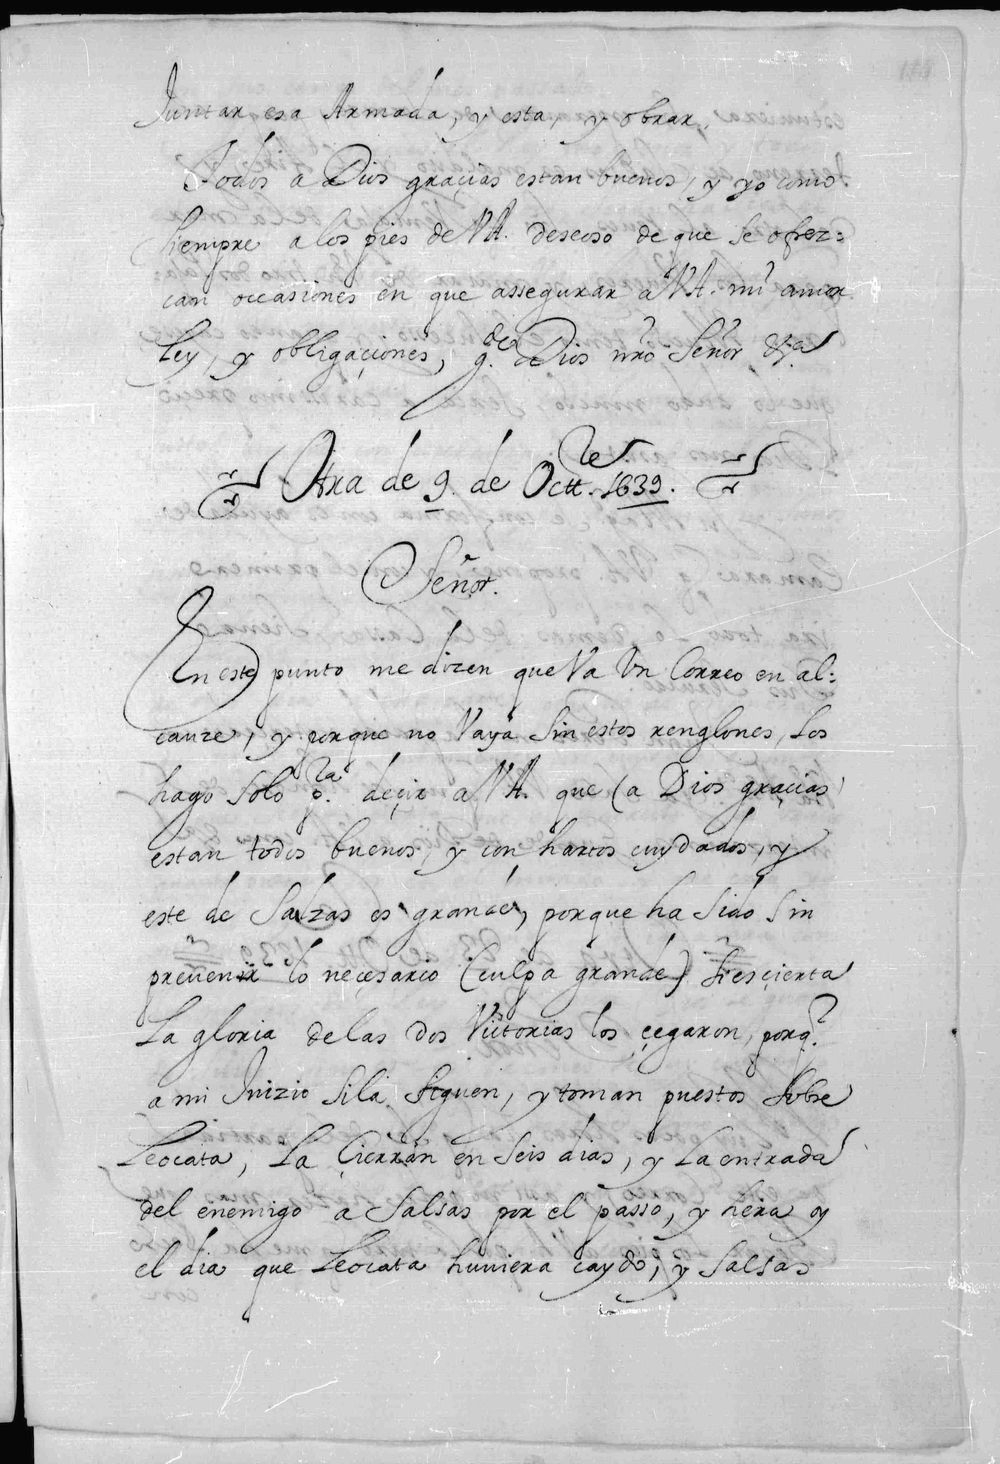 Juntar esa Armada, y esta, y obrar,
Todos a Dios gracias estan buenos, y yo como
siempre a los pies de VA. deseoso de que se ofrez=
can occasiones en que assegurar a VA. mi amor
Ley, y obligaçiones, g.de Dios nro Señor &.a
Otra de 9. de Octt.re 1639.
Señor.
En este punto me dizen que Va Un Correo en al=
canze, y porque no Vaya sin estos renglones, los
hago solo p.ra deçir a VA. que (a Dios graçias)
estan todos buenos, y con hartos cuydados, y
este de Salzas es grande, porque ha sido sin
preuenir lo neçesario (culpa grande) si es çierta
La gloria de las dos Vittorias los çegaron, porq.e
a mi Juizio si la siguen, y toman puestos sobre
Leocata, La Çierran en seis dias, y La entrada
del enemigo a Salsas por el passo, y hera oy
el dia que Leocata huuiera caydo, y Salsas